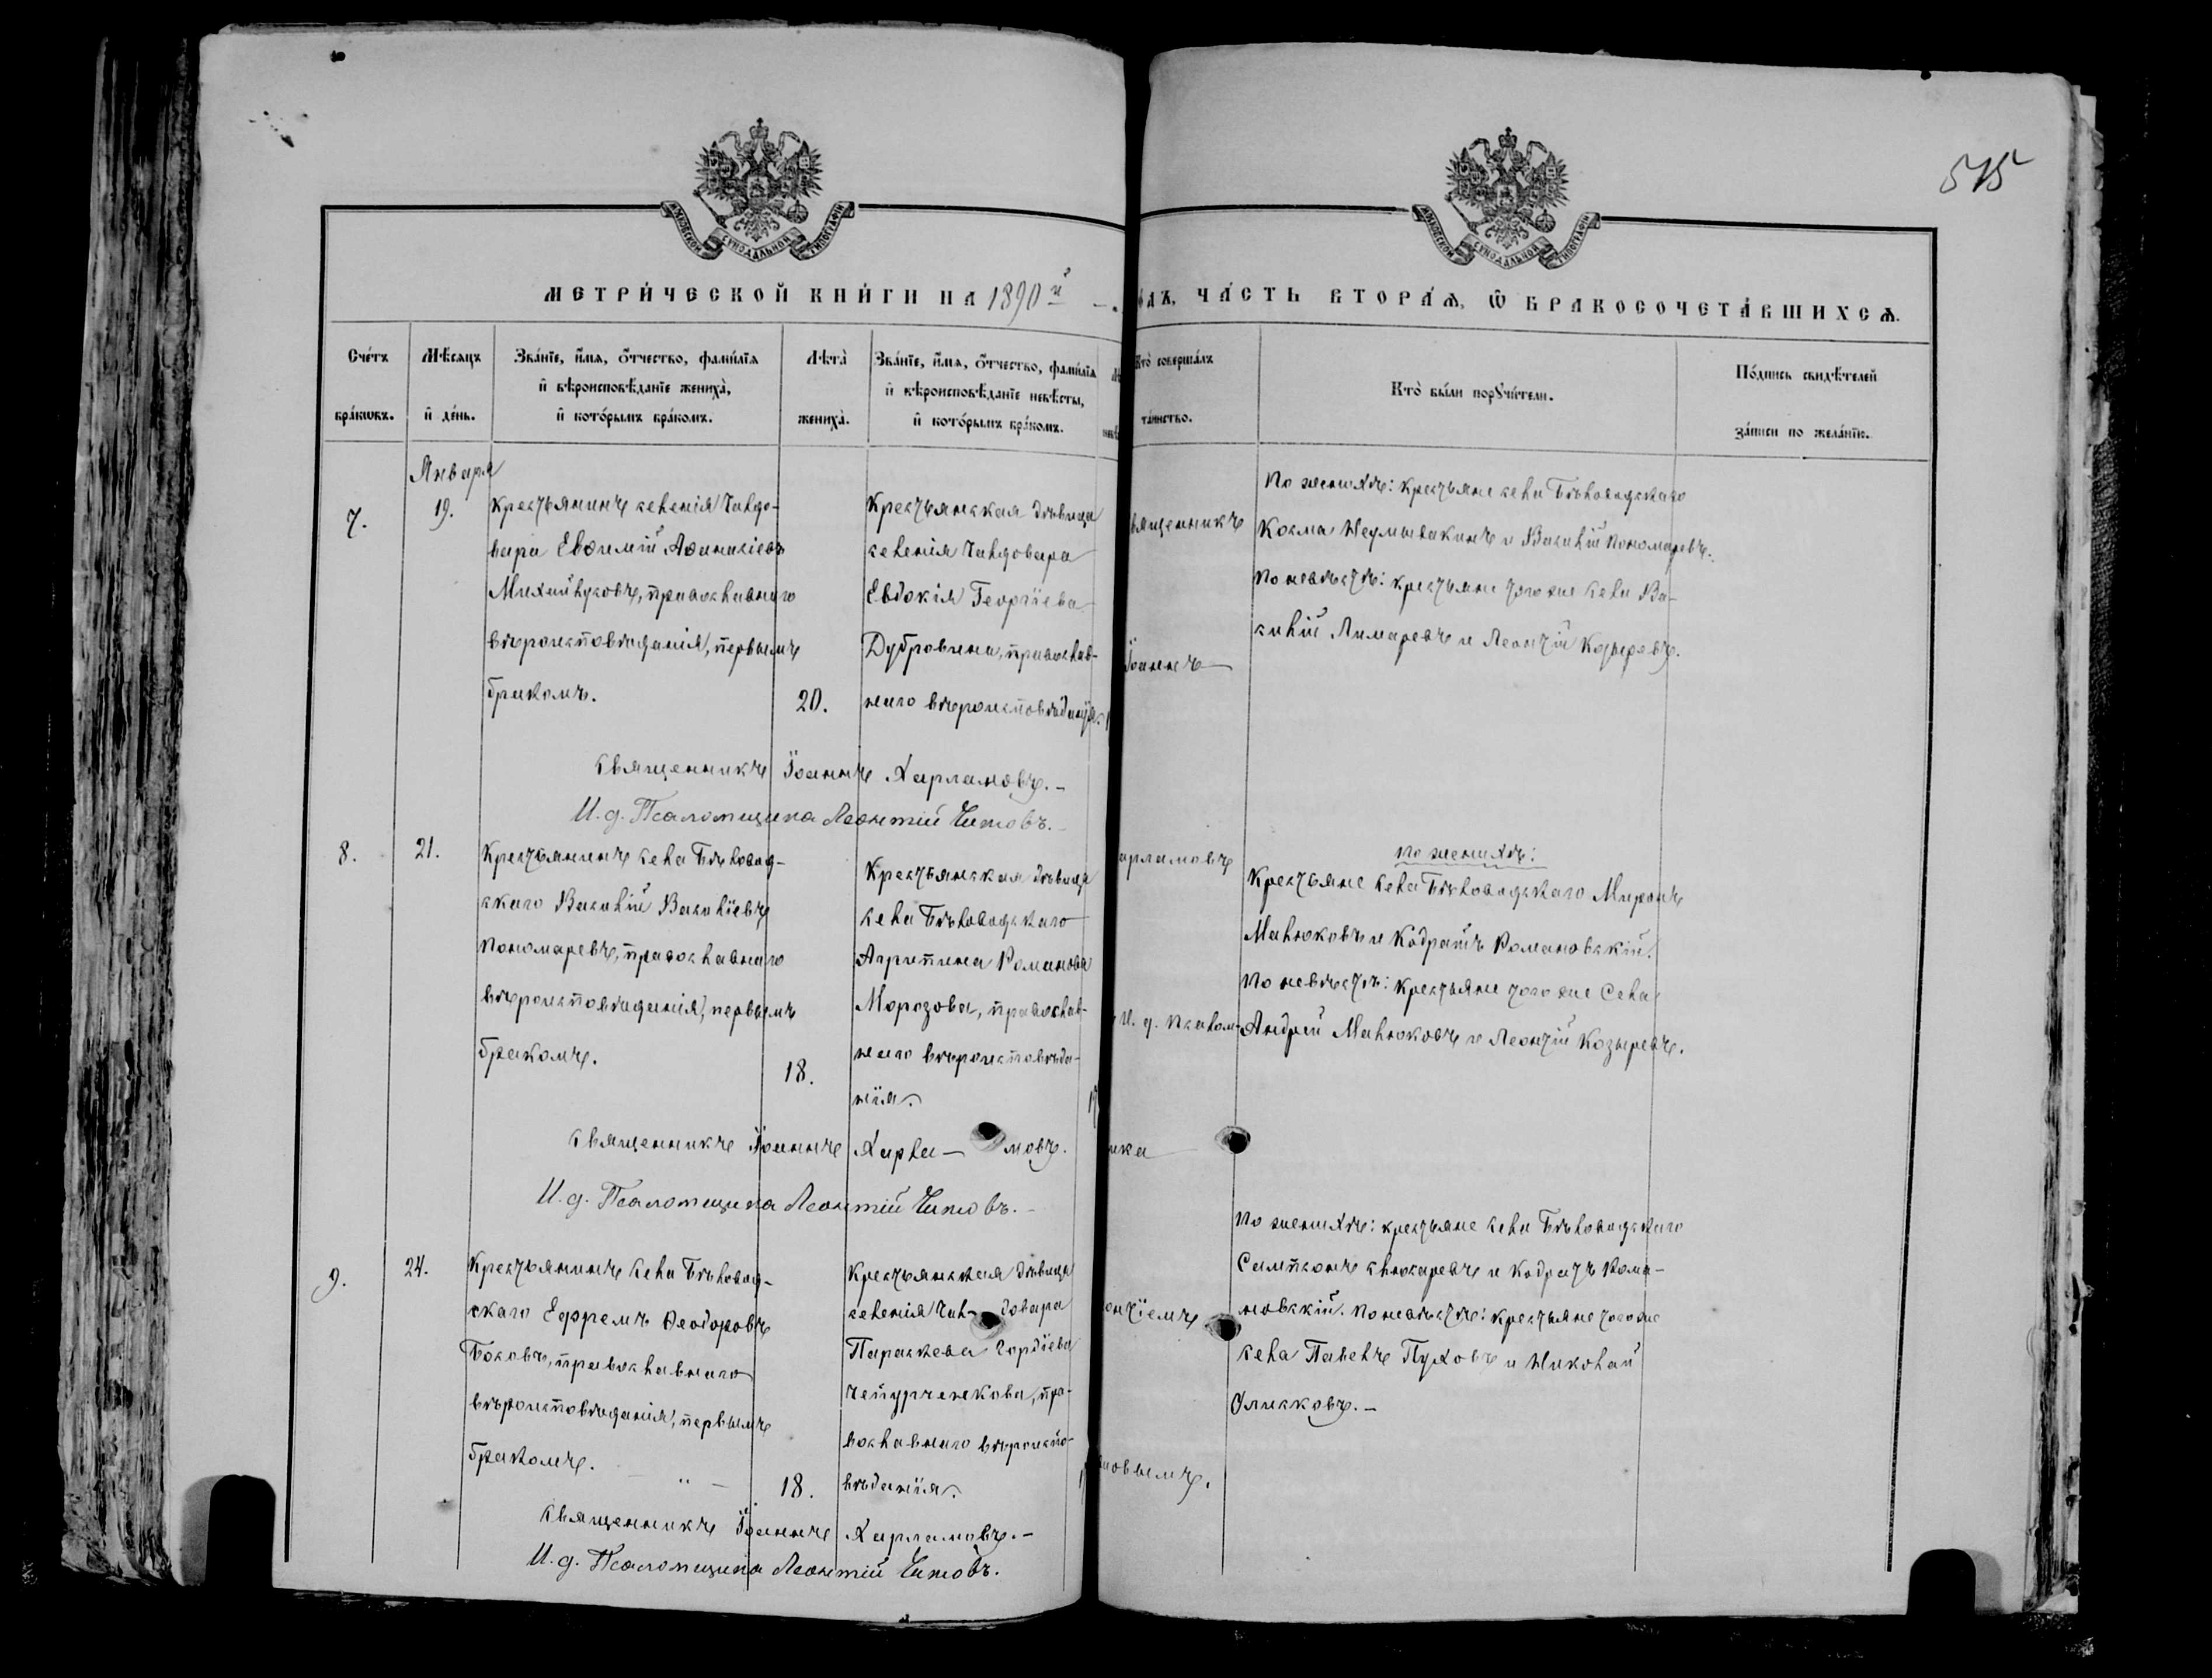 515
МОСКОВСКОЙ СѴНОДАЛЬНОЙ ТИПОГРАФІИ
МОСКОВСКОЙ СѴНОДАЛЬНОЙ ТИПОГРАФІИ
МЕТРИ́ЧЕСКОЙ КНИ́ГИ НА 1890 й
ДЪ, ЧА́СТЬ ВТОРА́Ѧ, Ѽ БРАКОСОЧЕТА́ВШИХСѦ.
Сче́тъ бра́ковъ.
Мѣ́сяцъ и҆ де́нь.
Зва́нїе, и҆́мѧ, ѻ҆́тчество, фами́лїѧ
и҆ вѣроисповѣ́данїе жениха̀,
и҆ кото́рымъ бра́комъ.
Лѣта̀ жениха̀.
Зва́нїе, и҆́мѧ, ѻ҆́тчество, фами́лїѧ
и҆ вѣроисповѣ́данїе невѣ́сты,
и҆ кото́рымъ бра́комъ.
Кто̀ соверша́лъ
та́инство.
Кто̀ бы́ли порꙋчи́тели.
По́дпись свидѣ́телей
за́писи по жела́нїю.
Января
7.
19.
Крестьянинъ селенія Чалдо-
вара Евѳимій Аѳанасіевъ
Михайлусовъ, православнаго
вѣроисповѣданія, первымъ
бракомъ.
20.
Крестьянская дѣвица
селенія Чалдовара
Евдокія Георгіева
Дубровина, православ-
наго вѣроисповѣданія.
вященникъ
Іоаннъ
По женихѣ: крестьяне села Бѣловодскаго
Косма Неумывакинъ и Василій Пономаревъ.
По невѣстѣ: крестьяне того же села Ва-
силій Лимаревъ и Леонтій Козыревъ.
Священникъ Іоаннъ Харламовъ. –
И. д. Псаломщика Леонтій Титовъ. –
8.
21.
Крестьянинъ села Бѣловод-
скаго Василій Василіевъ
Пономаревъ, православнаго
вѣроисповѣданія, первымъ
бракомъ.
18.
Крестьянская дѣвица
села Бѣловодскаго
Агрипина Романова
Морозова, православ-
наго вѣроисповѣда-
нія.
арламовъ
И. д. Псалом-
ика
По женихѣ:
Крестьяне села Бѣловодскаго Миронъ
Малюковъ и Кодратъ Романовскій.
По невѣстѣ: крестьяне того же села
Андрей Малюковъ и Леонтій Козыревъ.
Священникъ Іоаннъ Харла – мовъ.
И. д. Псаломщика Леонтій Титовъ. –
9.
24.
Крестьянинъ села Бѣловод-
скаго Ефремъ Ѳеодоровъ
Боковъ, православнаго
вѣроисповѣданія, первымъ
бракомъ.
18.
Крестьянская дѣвица
селенія Чал- довара
Параскева Гордіева
Чепурченкова, пра-
вославнаго вѣроиспо-
вѣданія.
онтіемъ
товымъ.
По женихѣ: крестьяне села Бѣловодскаго
Сампсонъ Слюсаревъ и Кодратъ Рома-
новскій. По невѣстѣ: крестьяне того же
села Павелъ Пуховъ и Николай
Священникъ Іоаннъ Харламовъ. –
И. д. Псаломщика Леонтій Титовъ.